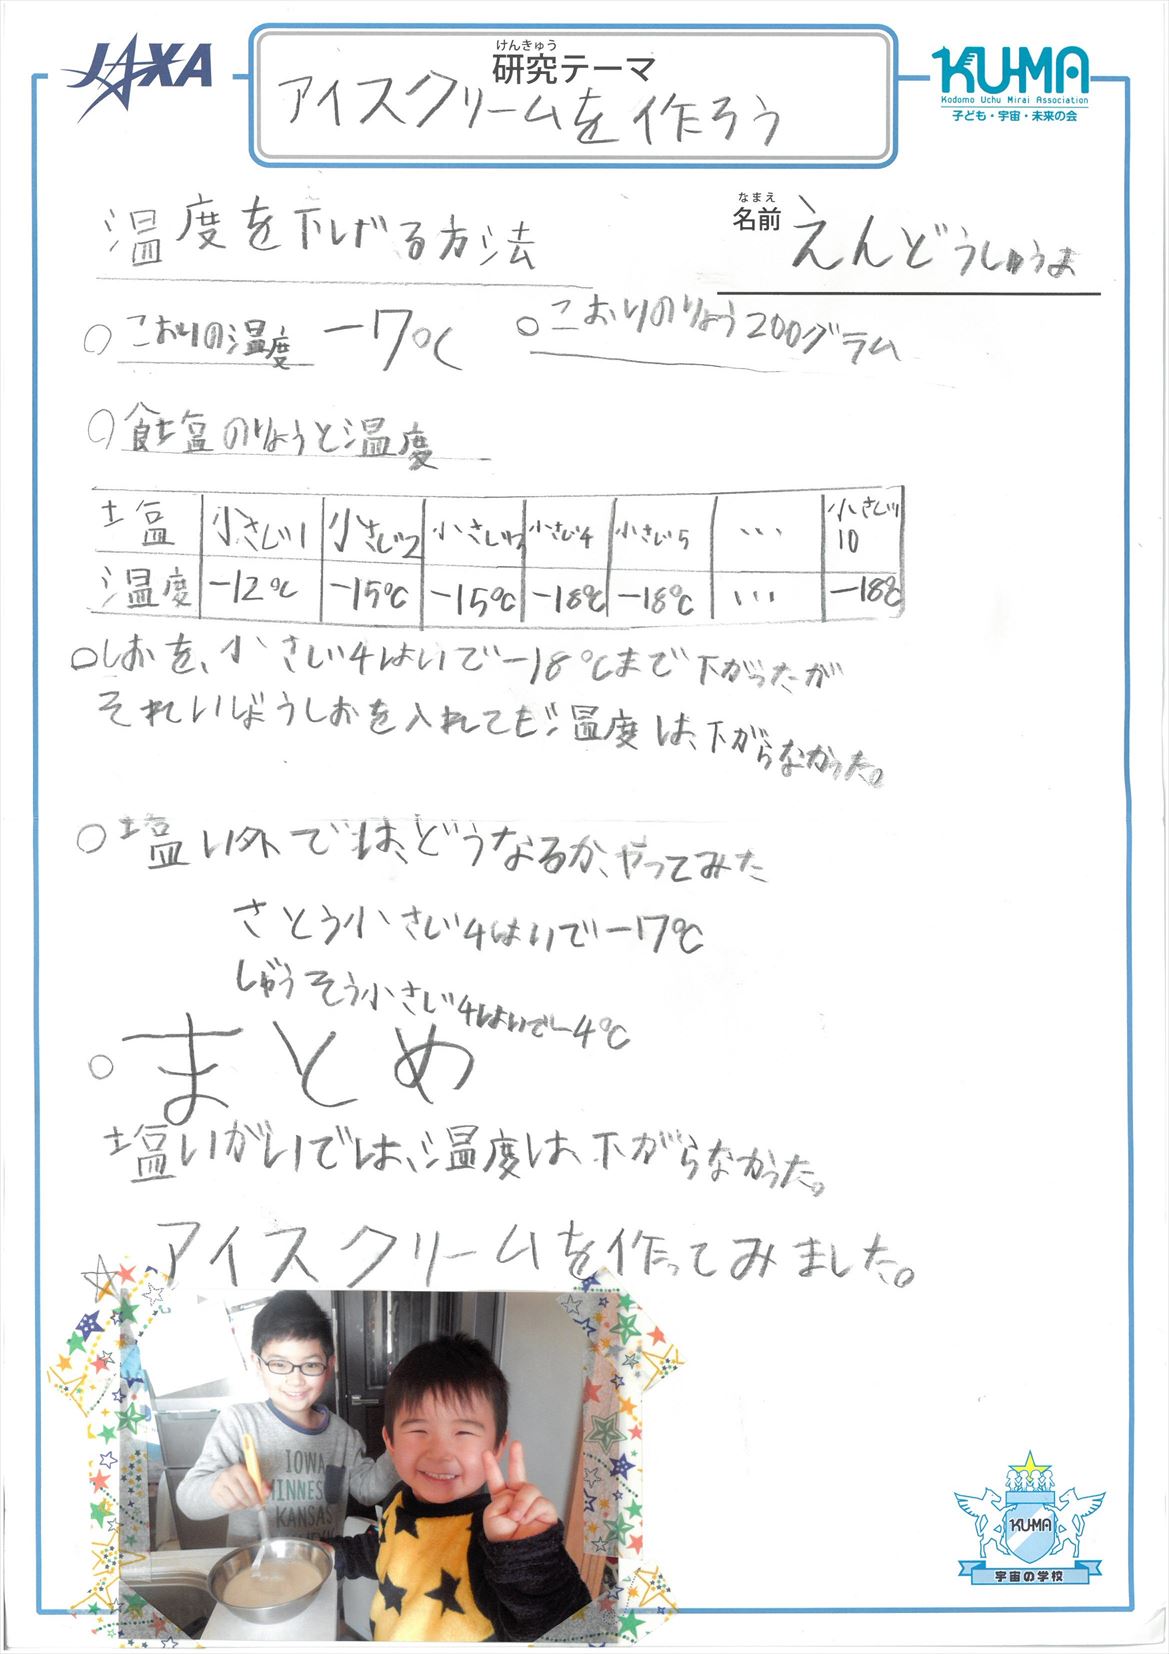 JAXA
けんきゅう
研究テーマ
アイスクリームを作ろう
KU-MA
Kodomo Uchu Mirai Association
子ども・宇宙・未来の会
温度を下げる方法
なまえ
名前 えんどうしゅうま
○こおりの温度 -7℃ ○こおりのりょう200グラム
○食塩のりょうと温度
塩 小さじ1 小さじ2 小さじ3 小さじ4 小さじ5 ... 小さじ10
温度 -12℃ -15℃ -15℃ -18℃ -18℃ ... -18℃
○しおを、小さじ4はいで-18℃まで下がったが
それいじょうしおを入れても温度は、下がらなかった。
○塩い外では、どうなるか、やってみた
さとう小さじ4はいで-17℃
じゅうそう小さじ4はいで-4℃
○まとめ
塩いがいでは、温度は、下がらなかった。
☆アイスクリームを作ってみました。
IOWA
MINNES
KANSAS
KU-MA
宇宙の学校